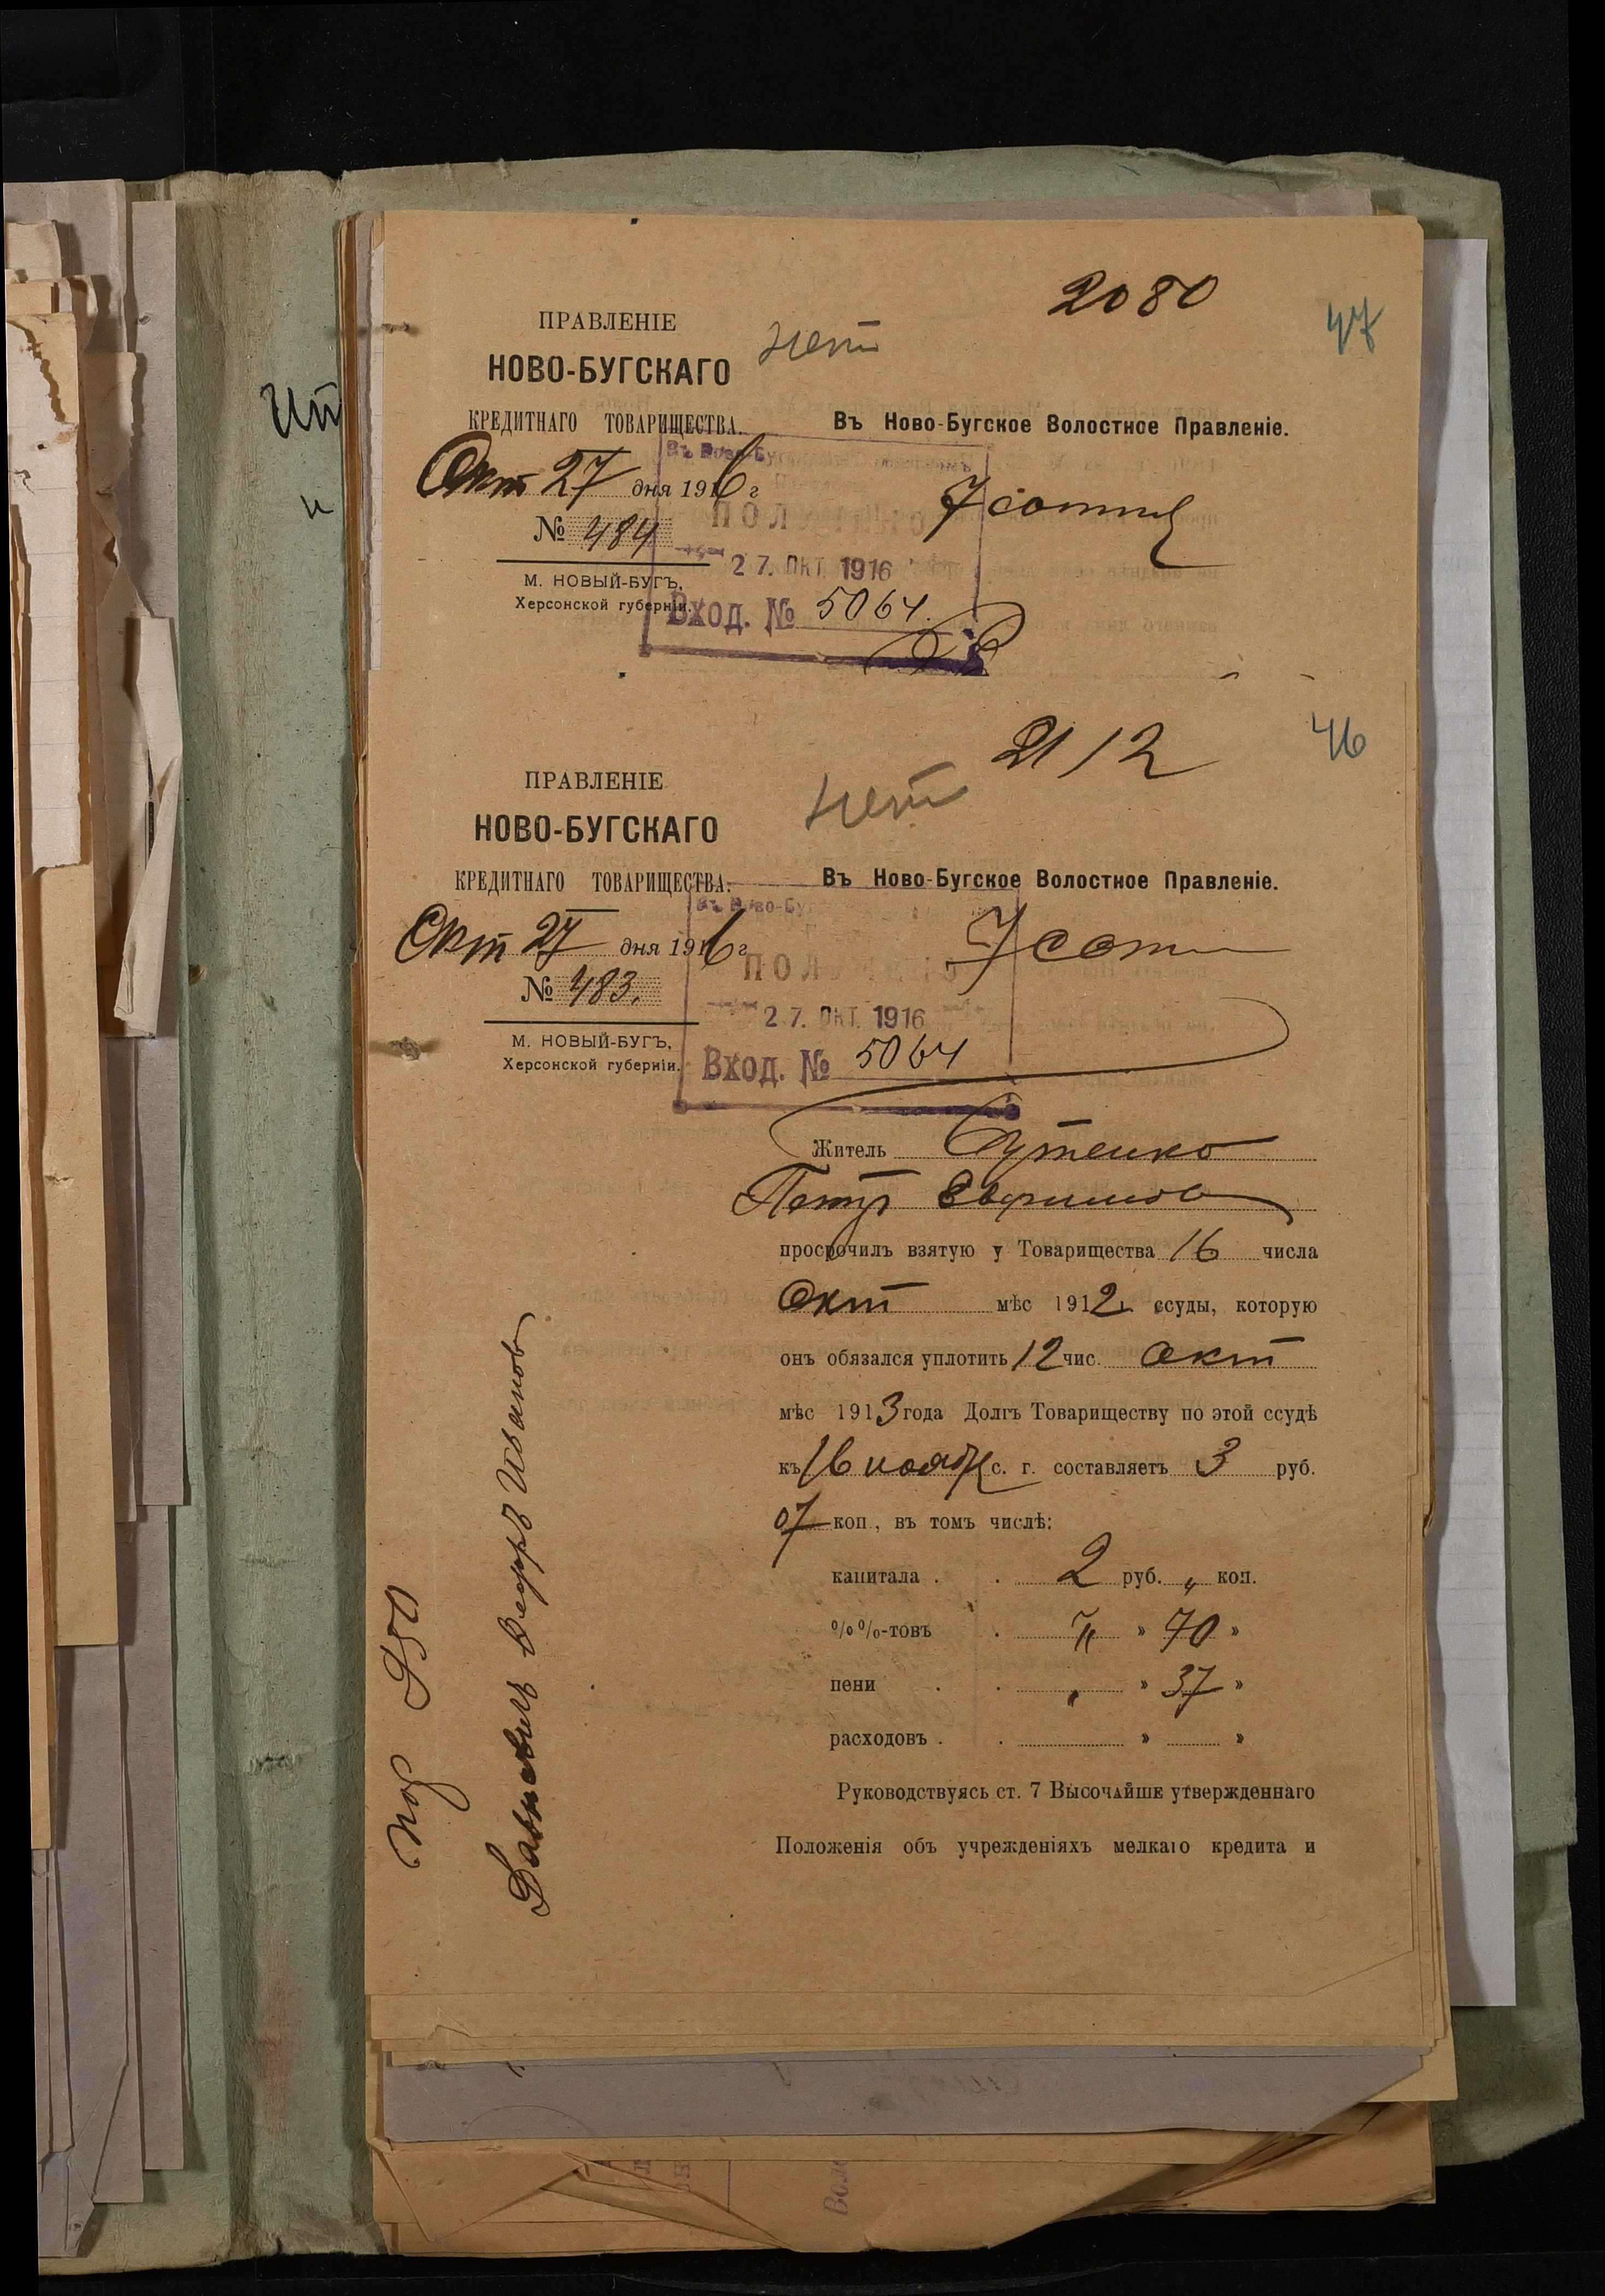 2080
47
ПРАВЛЕНІЕ
нет
НОВО-БУГСКАГО
КРЕДИТНАГО ТОВАРИЩЕСТВА.
Въ Ново-Бугское Волостное Правленіе.
Окт 27 дня 1916 г
7 сотни
№ 484
27. ОКТ. 1916
М. НОВЫЙ-БУГЪ,
Херсонской губерніи.
Вход. № 5064.
21/2
46
ПРАВЛЕНІЕ
нет
НОВО-БУГСКАГО
КРЕДИТНАГО ТОВАРИЩЕСТВА.
Въ Ново-Бугское Волостное Правленіе.
Окт 27 дня 1916 г
7 сот
№ 483.
27. ОКТ. 1916
М. НОВЫЙ-БУГЪ,
Херсонской губерніи.
Вход. № 5064
Житель
Петр
просрочилъ взятую у Товарищества 16 числа
Окт мѣс 1912 г. ссуды, которую
онъ обязался уплотить 12 чис. Окт
мѣс 1913 года Долгъ Товариществу по этой ссудѣ
къ 16 ноябр с. г. составляетъ 3 руб.
07 коп., въ томъ числѣ:
капитала . . 2 руб. „ коп.
%%-товъ . „ » 70 »
пени . . „ » 37 »
расходовъ . . » »
Руководствуясь ст. 7 Высочайше утвержденнаго
Положенія объ учрежденіяхъ мелкаго кредита и
Иванов